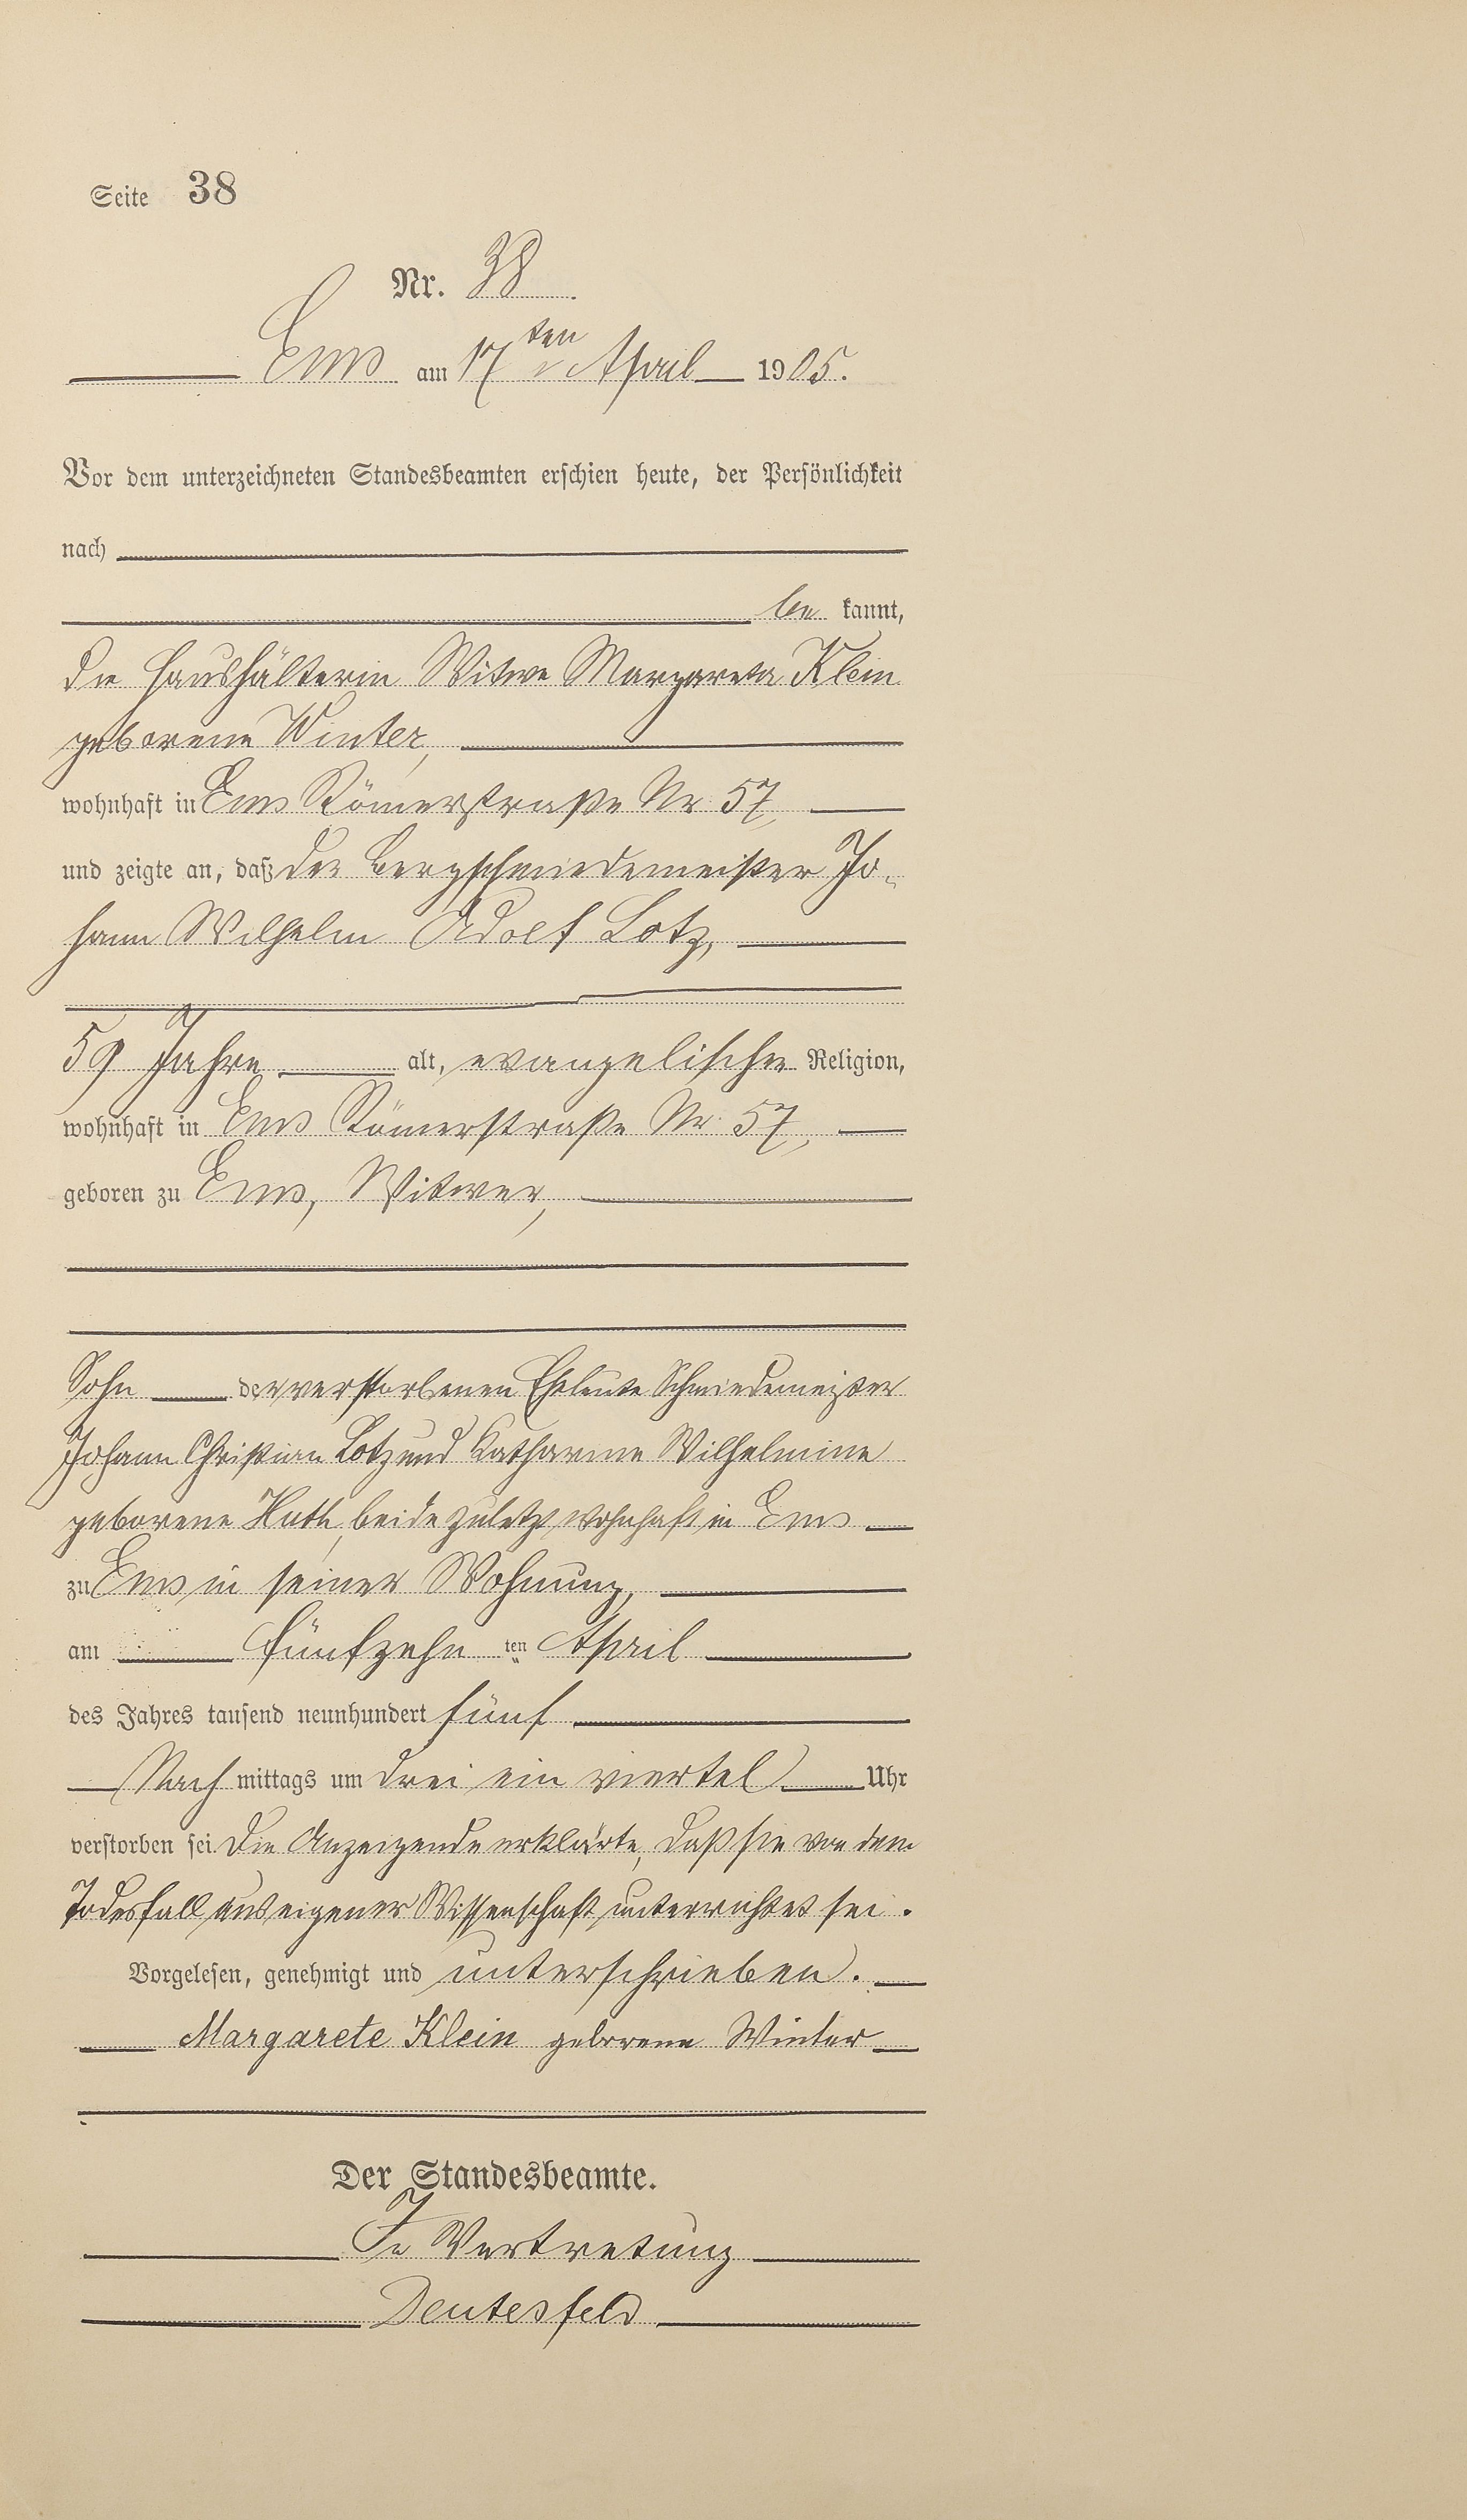 Seite 38
Nr. 38.
Ems am 17ten April 1905.
Vor dem unterzeichneten Standesbeamten erschien heute, der Persönlichkeit
nach
be kannt,
die Haushälterin Witwe Margareta Klein
geborene Winter,
wohnhaft in Ems Römerstraße Nr. 57,
und zeigte an, daß der Bergschmiedemeister Jo-
hann Wilhelm Adolf Lotz,
59 Jahre alt, evangelischer Religion,
wohnhaft in Ems Römerstraße Nr. 57,
geboren zu Ems, Witwer,
Sohn der verstorbenen Eheleute Schmiedemeister
Johann Christian Lotz und Katharine Wilhelmine
geborene Huth, beide zuletzt wohnhaft in Ems
zu Ems in seiner Wohnung,
am fünfzehn ten April
des Jahres tausend neunhundert fünf
Nach mittags um drei ein viertel Uhr
verstorben sei. Die Anzeigende erklärte, daß sie von dem
Todesfall aus eigener Wissenschaft unterrichtet sei.
Vorgelesen, genehmigt und unterschrieben.
Margarete Klein geborene Winter
Der Standesbeamte.
In Vertretung
Deutesfeld